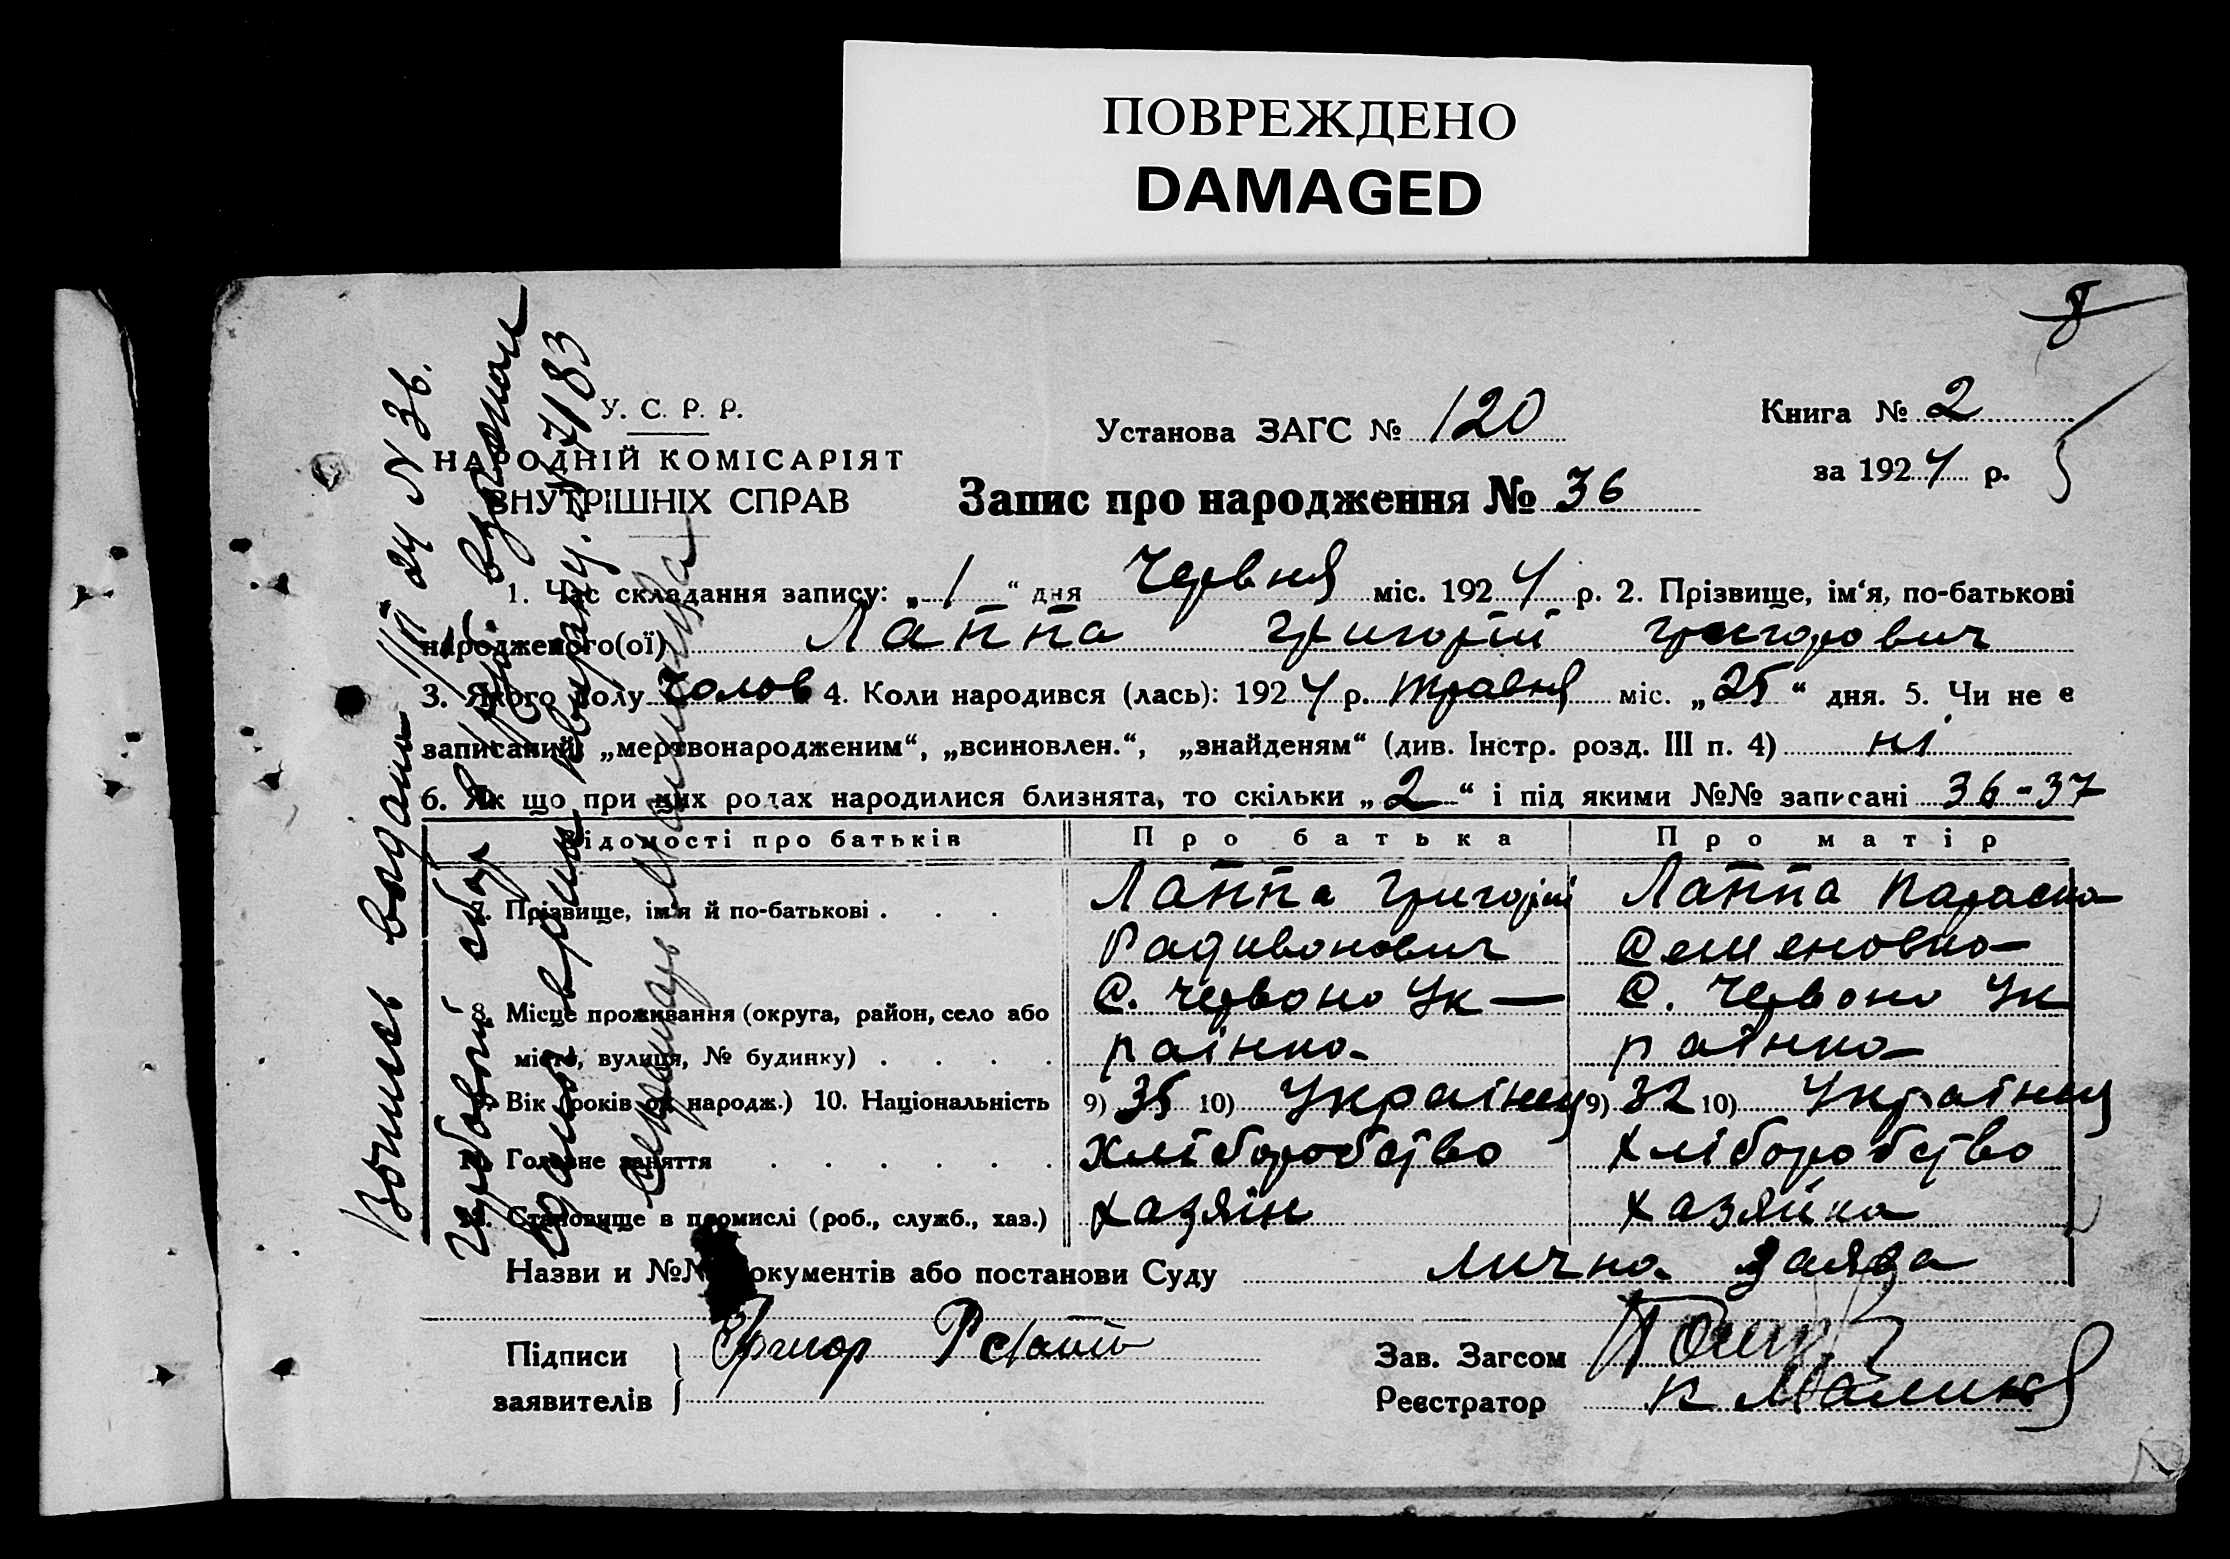 ПОВРЕЖДЕНО
DAMAGED
8
У. С. Р. Р.
НАРОДНІЙ КОМІСАРІЯТ
ВНУТРІШНІХ СПРАВ
Установа ЗАГС № 120
Книга № 2
за 1924 р.
Запис про народження № 36
1. Час складання запису: „1“ дня Червня міс. 1924 р. 2. Прізвище, ім‘я, по-батькові
народженого(ої) Лаппа Григорій Григорович
3. Якого полу Чолов 4. Коли народився (лась): 1924 р. травня міс. „25“ дня. 5. Чи не є
записаний: „мертвонародженим“, „всиновлен.“, „знайденям“ (див. Інстр. розд. III п. 4) ні
6. Як що при цих родах народилися близнята, то скільки „2“ і під якими №№ записані 36-37
Відомості про батьків Про батька Про матір
7. Прізвище, ім‘я й по-батькові . . . Лаппа Григорій Лаппа Параска
Радивонович Семеновна
8. Місце проживання (округа, район, село або С. Червоно Ук— С. Червоно Ук
місто, вулиця, № будинку) . . . . раїнка раїнка
9. Вік (років од народж.) 10. Національність 9) 35 10) Українец 9) 32 10) Українец
11. Головне заняття . . . . . . хліборобство хліборобство
12. Становище в промислі (роб., служб., хаз.) хазяїн хазяйка
Назви и №№ документів або постанови Суду лична заява
Підписи
заявителів
Григор
Зав. Загсом
Реєстратор К Малиня
24 N 36.
Гербовый сбор взыскан